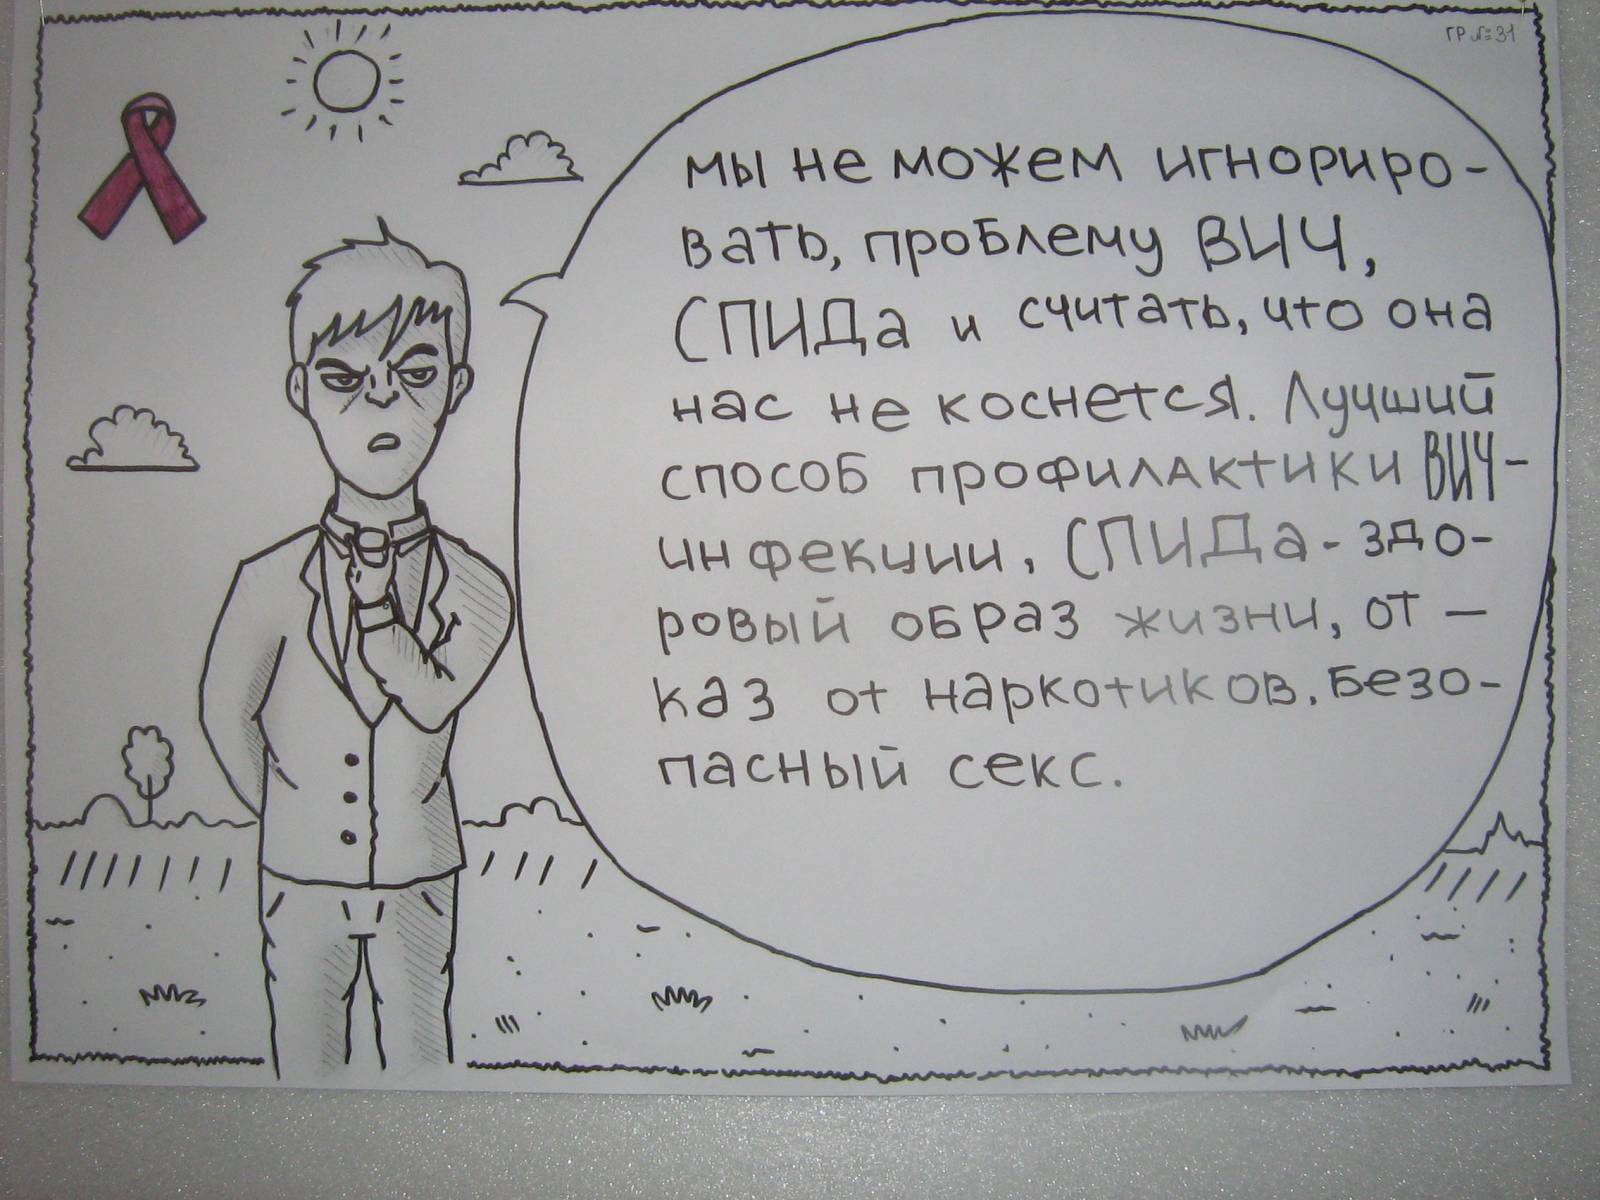 ГР №31
мы не можем игнориро-
вать, проблему ВИЧ,
СПИДа и считать, что она
нас не коснется. Лучший
способ профилактики ВИЧ-
инфекции, СПИДа - здо-
ровый образ жизни, от -
каз от наркотиков. Безо-
пасный секс.